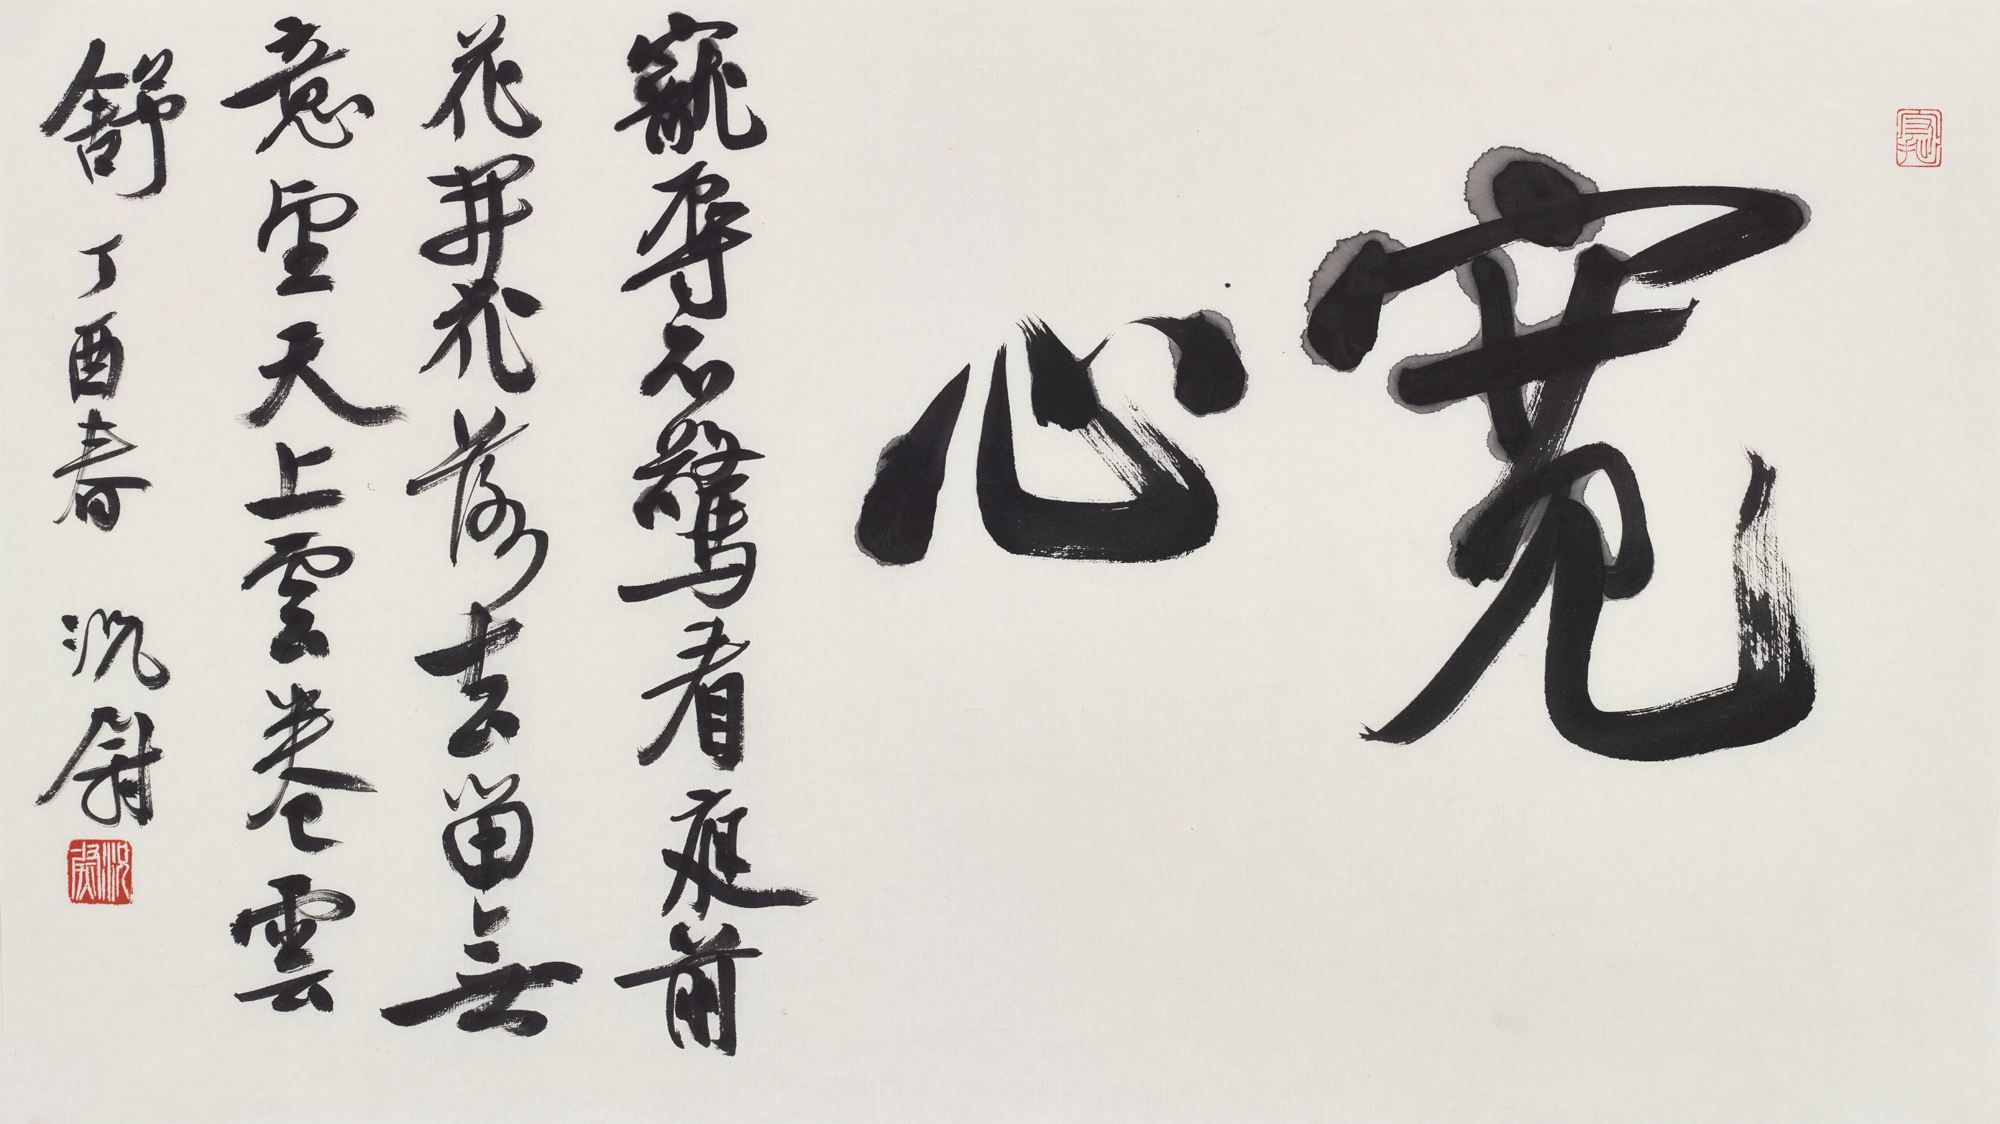 寬心
寵辱不驚看庭前
花開花落去留無
意望天上雲卷雲
舒 丁酉春 沈尉